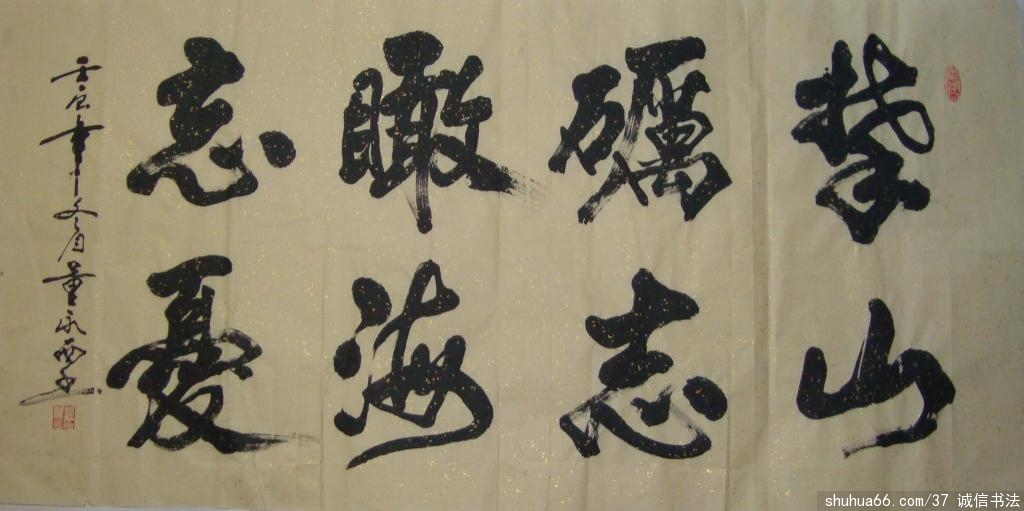 攀山
礪志
瞰海
忘憂
壬辰年冬月董永西
shuhua66.com/37 诚信书法